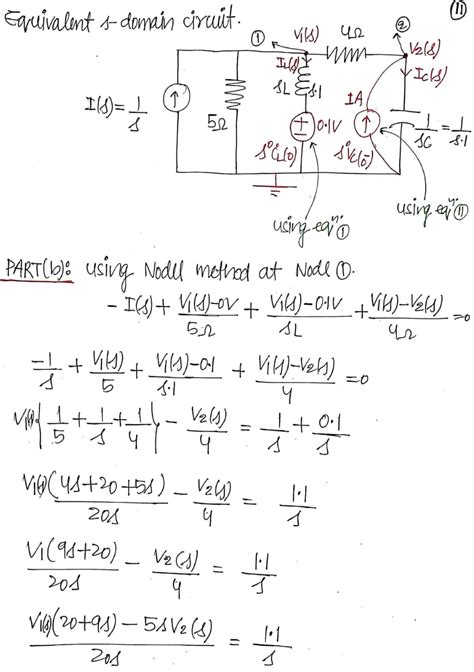 Equivalent s-domain circuit.
11
① V₁(s) 4Ω ②
V₂(s)
I_L(s) I_C(s)
sL s.1
I(s)=1/s
5Ω
0.1V
1A
1/sC = 1/s.1
s°i_L(0)
s°V_C(0⁻)
using eqⁿ: ①
using eqⁿ: ⑪
PART(b): using Nodel method at Node ①.
-I(s) + (V₁(s)-0V)/5Ω + (V₁(s)-0.1V)/sL + (V₁(s)-V₂(s))/4Ω =0
-1/s + V₁(s)/5 + (V₁(s)-0.1)/s.1 + (V₁(s)-V₂(s))/4 =0
V₁(s){1/5 + 1/s + 1/4} - V₂(s)/4 = 1/s + 0.1/s
V₁(s)(4s+20+5s)/20s - V₂(s)/4 = 1.1/s
V₁(9s+20)/20s - V₂(s)/4 = 1.1/s
V₁(s)(20+9s) - 5sV₂(s)/20s = 1.1/s